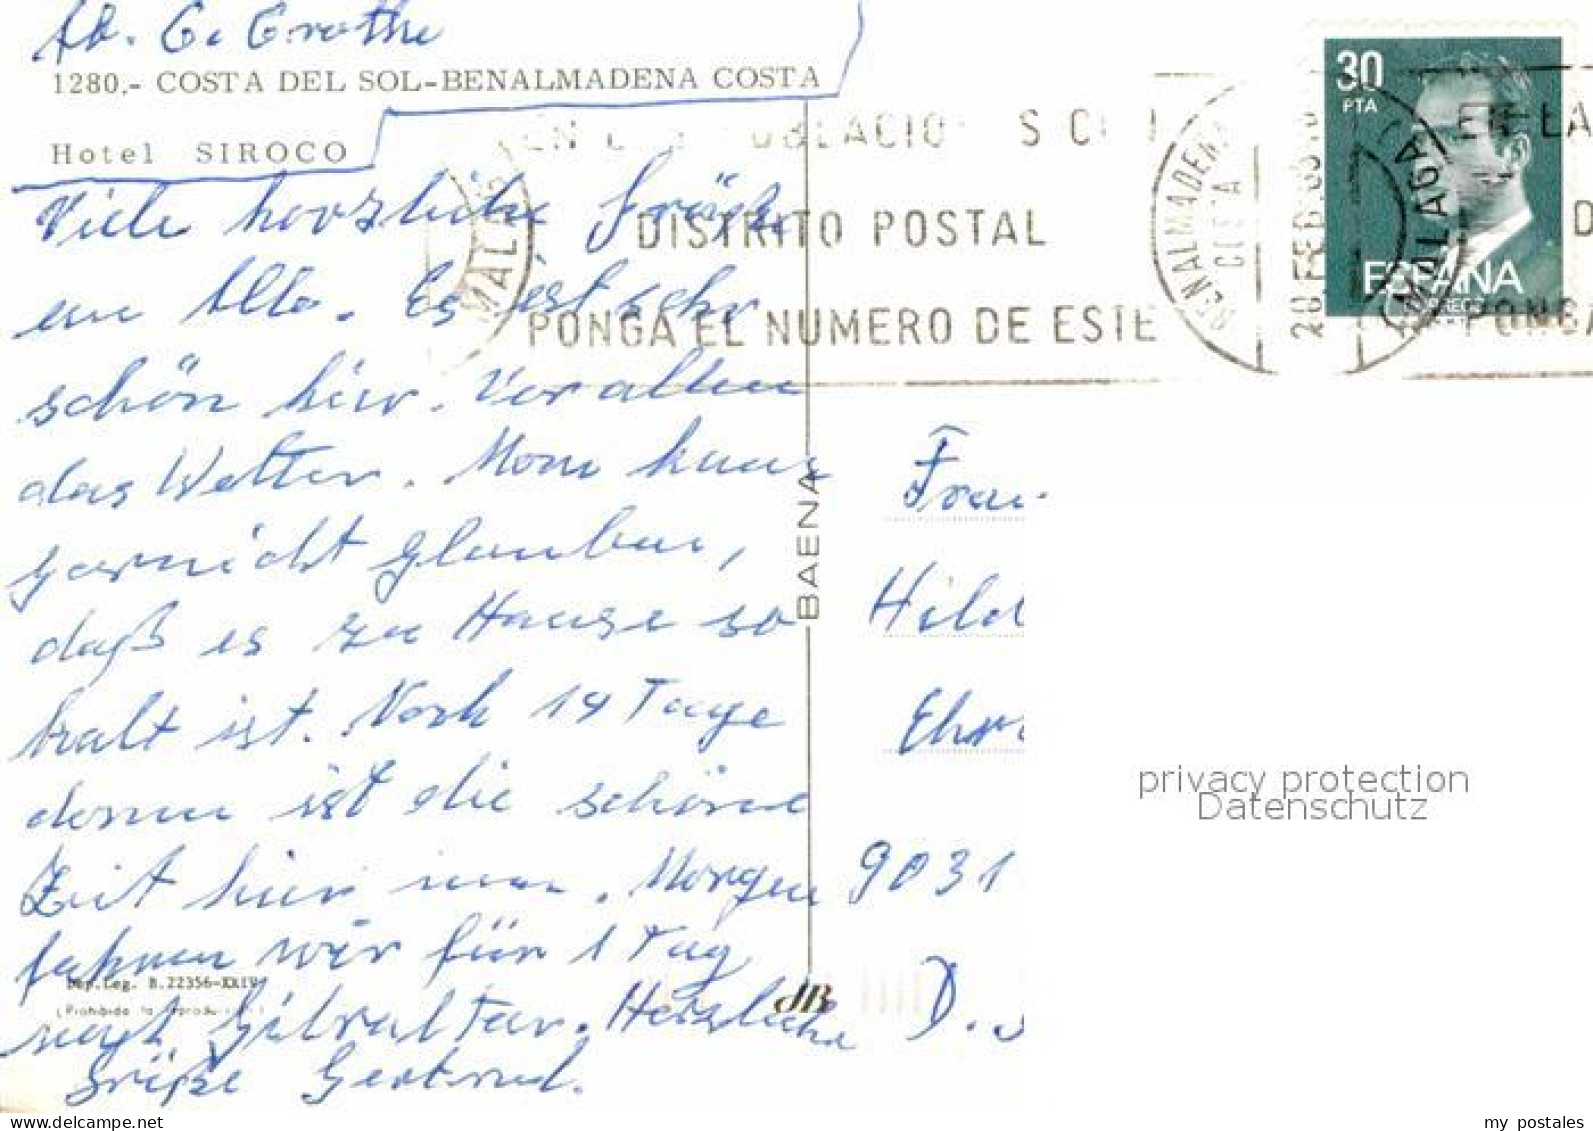 Ab. G. Grothe
1280.- COSTA DEL SOL-BENALMADENA COSTA
Hotel SIROCO
Viele herzliche Grüße
an Alle. Es ist sehr
schön hier. Vor allen
das Wetter. Man kann
garnicht glauben,
daß es zu Hause so
kalt ist. Noch 14 Tage
dann ist die schöne
Zeit hier um. Morgen
fahren wir für 1 Tag
nach Gibraltar. Herzliche
Grüße Gertrud.
Dep.Leg. B.22356-XXIV
BAENA
JB
MALAGA
DISTRITO POSTAL
PONGA EL NUMERO DE ESTE
BENALMADENA
COSTA
28 FEB
MALAGA
EN LA
D
PONGA
30
PTA
ESPAÑA
CORREOS
Frau
Hild
Ehr
9031
D.
privacy protection
Datenschutz
www.delcampe.net
my_postales